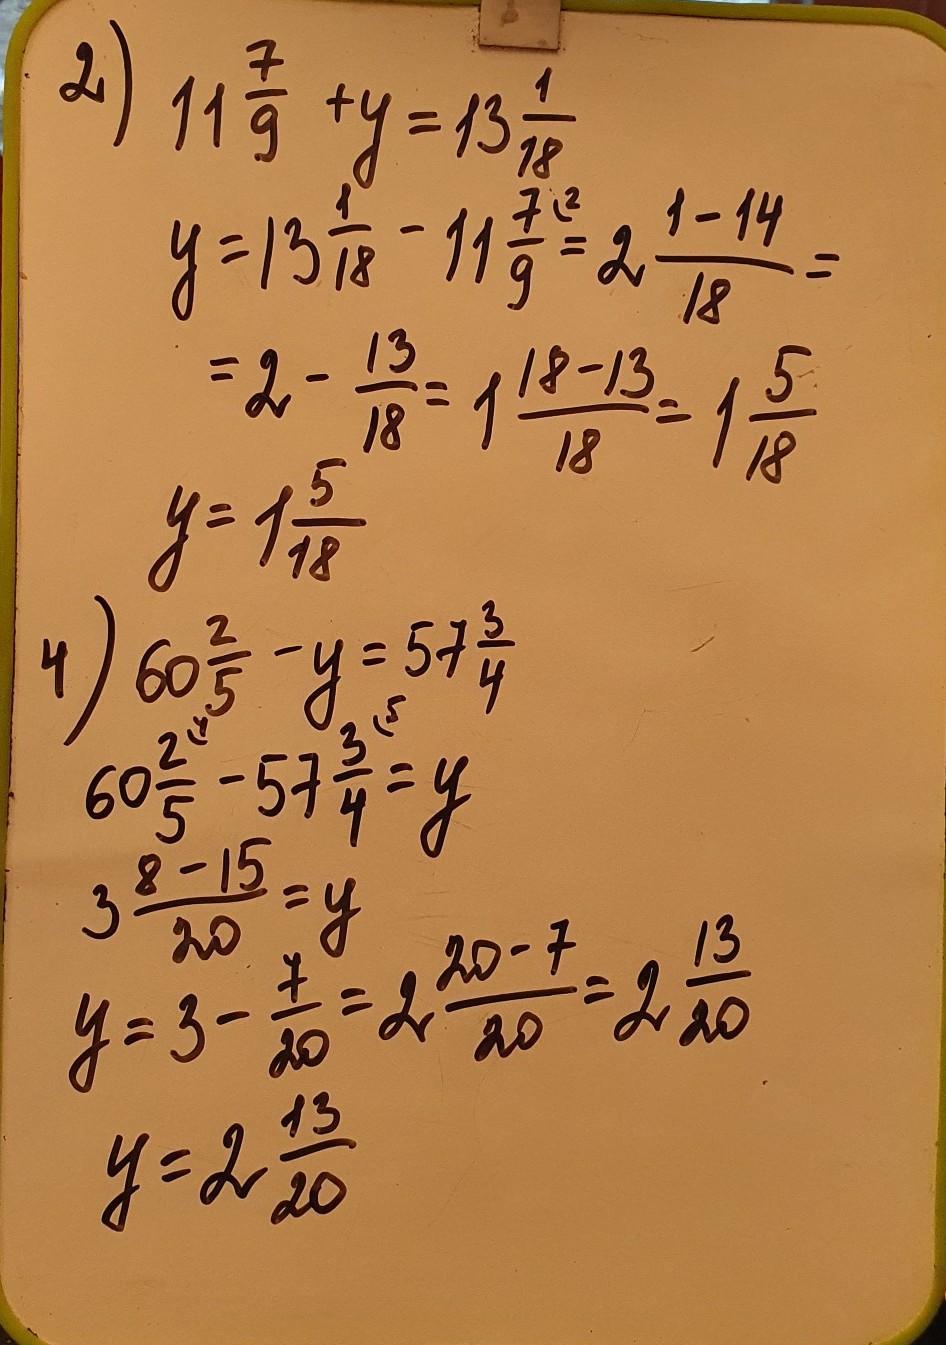 2) 11 7/9 + y = 13 1/18
y = 13 1/18 - 11 7/9 (2 = 2 (1-14)/18 =
= 2 - 13/18 = 1 (18-13)/18 = 1 5/18
y = 1 5/18
4) 60 2/5 - y = 57 3/4
60 2/5 (4 - 57 3/4 (5 = y
3 (8-15)/20 = y
y = 3 - 7/20 = 2 (20-7)/20 = 2 13/20
y = 2 13/20